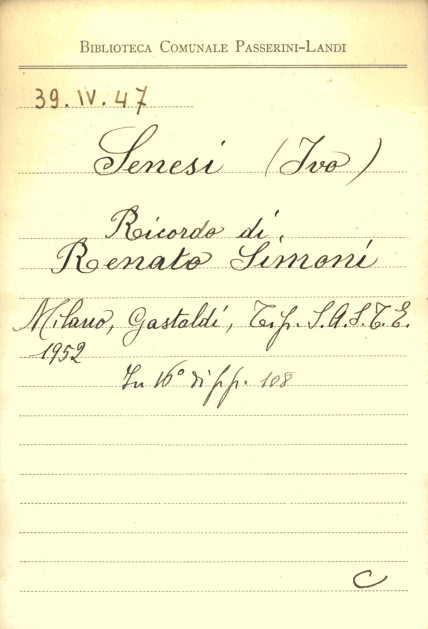 BIBLIOTECA COMUNALE PASSERINI-LANDI
39.IV.47
Senesi (Ivo)
Ricordo di
Renato Simoni
Milano, Gastaldi, Tip. S.A.S.T.E.
1952
In 16° di pp. 108
C